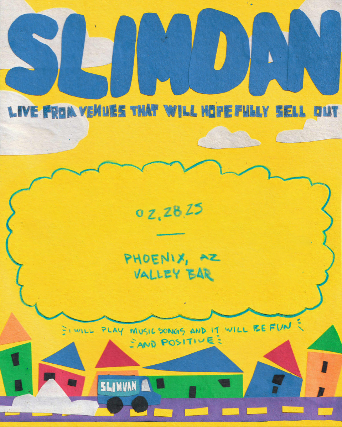 SLIMDAN
LIVE FROM VENUES THAT WILL HOPEFULLY SELL OUT
02.28.25
PHOENIX, AZ
VALLEY BAR
I WILL PLAY MUSIC SONGS AND IT WILL BE FUN
AND POSITIVE
SLIMVAN